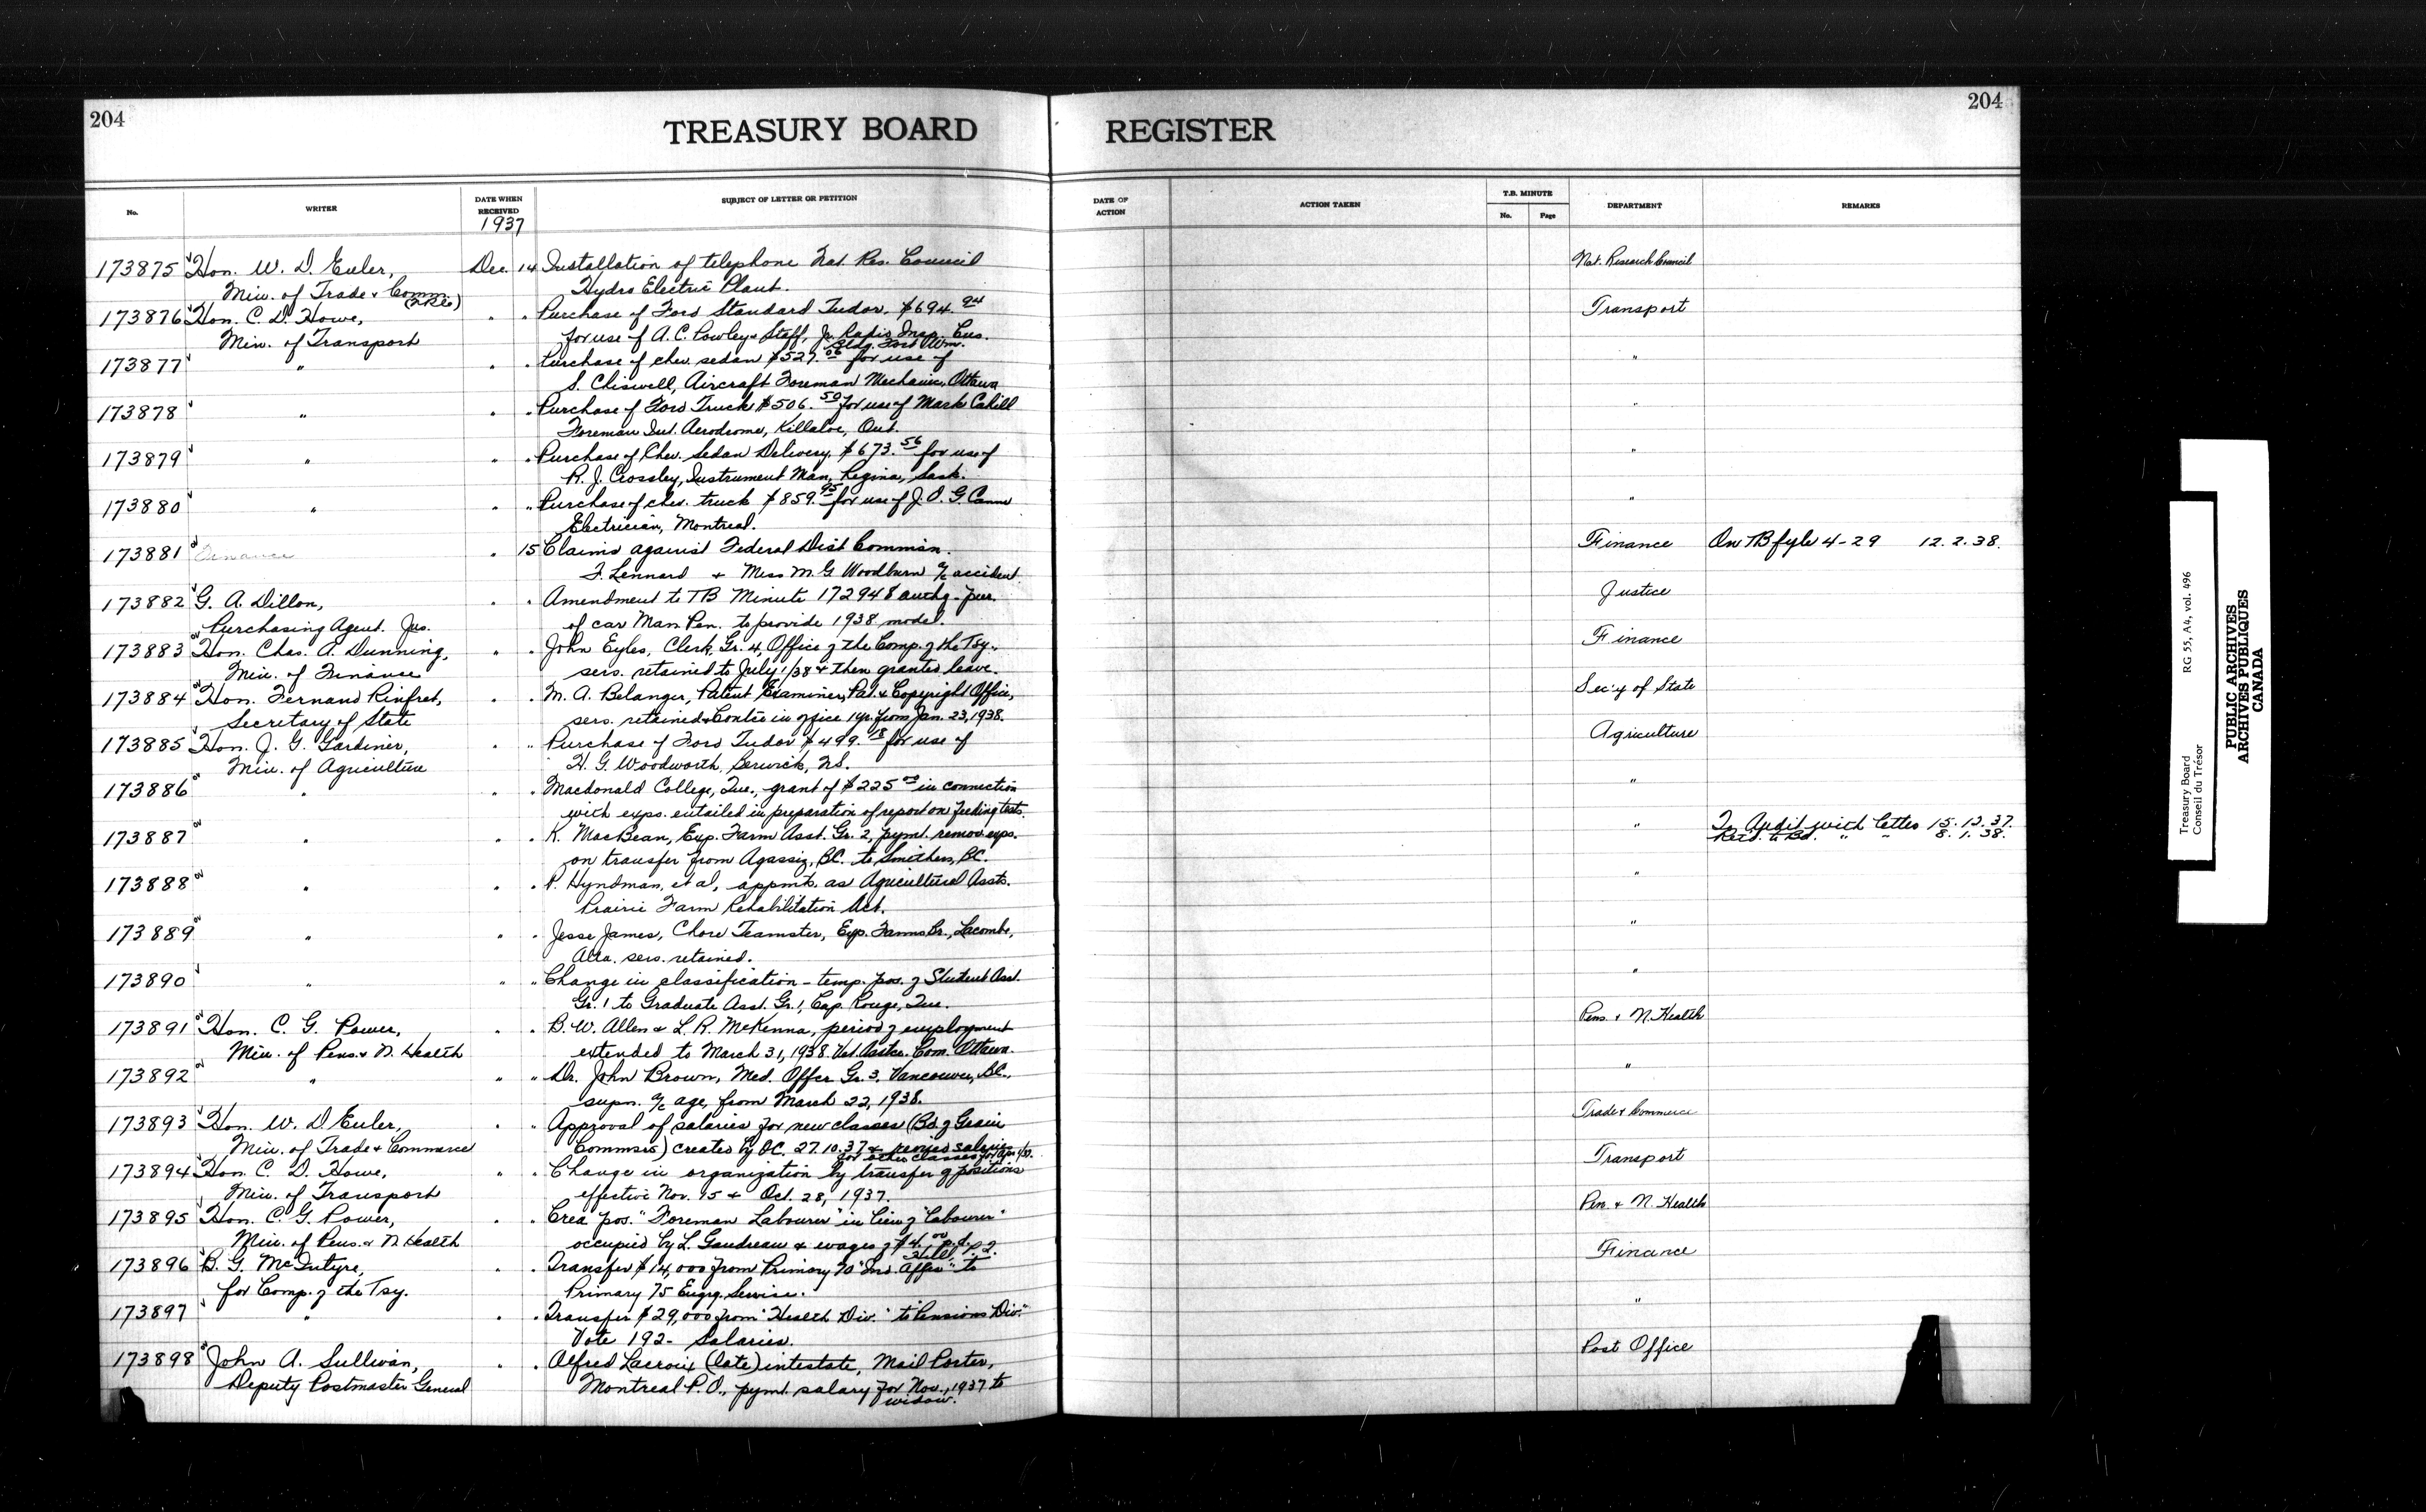 204
204
TREASURY BOARD REGISTER
No.
WRITER
DATE WHEN RECEIVED
1937
SUBJECT OF LETTER OR PETITION
DATE OF ACTION
ACTION TAKEN
T.B. MINUTE
No.
Page
DEPARTMENT
REMARKS
173875 Hon. W. D. Euler, Dec. 14 Installation of telephone Nat. Res. Council Nat. Research Council
Min. of Trade & Comm. Hydro Electric Plant.
173876 Hon. C. D. Howe, " " Purchase of Ford Standard Tudor, $694.94 Transport
Min. of Transport for use of A. C. Powley & Staff, Jr. Radio Insp. Cus.
Bldg. Fort Wm.
173877 " " " Purchase of chev. sedan $527.06 for use of "
S. Chiswell, Aircraft Foreman Mechanic, Ottawa
173878 " " " Purchase of Ford Truck $506.50 for use of Mark Cahill "
Foreman Int. Aerodrome, Killaloe, Ont.
173879 " " " Purchase of Chev. Sedan Delivery, $673.56 for use of "
R. J. Crossley, Instrument Man, Regina, Sask.
173880 " " " Purchase of chev. truck $859.95 for use of J. O. G. Cann "
Electrician, Montreal.
173881 Finance " 15 Claims against Federal Dist Commsn. Finance On TB fyle 4-29 12.2.38.
F. Lennard & Miss M. G Woodburn a/c accident.
173882 G. A. Dillon, " " Amendment to TB Minute 172948 authg. pur. Justice
Purchasing Agent. Jus. of car Man. Pen. to provide 1938 model.
173883 Hon. Chas. A. Dunning, " " John Eyles, Clerk, Gr. 4, Office of the Comp. of the Tsy., Finance
Min. of Finance sers. retained to July 1/38 & then granted leave.
173884 Hon. Fernand Rinfret, " " M. A. Belanger, Patent Examiner, Pat. & Copyright Office, Sec'y of State
Secretary of State sers. retained & Contce in office 1 yr. from Jan. 23, 1938.
173885 Hon. J. G. Gardiner, " " Purchase of Ford Tudor $499.18 for use of Agriculture
Min. of Agriculture H. G. Woodworth, Berwick, N.S.
173886 " " " Macdonald College, Que., grant of $225.00 in connection "
with exps. entailed in preparation of report on feeding tests.
173887 " " " K. MacBean, Exp. Farm Asst. Gr. 2, pymt. remov. exps. " To Audit with letter 15.12.37.
on transfer from Agassiz, BC. to Smithers, BC. Retd. to Bd. " " 8.1.38.
173888 " " " P. Hyndman, et al, appmts. as Agricultural Assts. "
Prairie Farm Rehabilitation Act.
173889 " " " Jesse James, Chore Teamster, Exp. Farms Br., Lacombe, "
Alta. sers. retained.
173890 " " " Change in classification - temp. pos. of Student Asst. "
Gr. 1 to Graduate Asst. Gr. 1, Cap Rouge, Que.
173891 Hon. C. G. Power, " " B. W. Allen & L. R. McKenna, period of employment Pens. & N. Health
Min. of Pens. & N. Health extended to March 31, 1938. Vet. Asstce. Com. Ottawa.
173892 " " " Dr. John Brown, Med. Offcr Gr. 3, Vancouver, BC., "
supn. a/c age, from March 22, 1938.
173893 Hon. W. D Euler, " " Approval of salaries for new classes (Bd. of Grain Trade & Commerce
Min. of Trade & Commerce Commsrs) created by OC. 27.10.37 & revised salaries
for other classes
173894 Hon. C. D. Howe, " " Change in organization by transfer of positions Transport
Min. of Transport effective Nov. 15 & Oct. 28, 1937.
173895 Hon. C. G. Power, " " Crea pos. "Foreman Labourer" in lieu of "Labourer" Pen. & N. Health
Min. of Pens. & N Health occupied by L. Gaudreau & wages of $4.00 p.d.
173896 B. G. McIntyre, " " Transfer $14,000 from Primary 70 "Ind. Affrs" to Finance
for Comp. of the Tsy. Primary 75 Engrg. Service.
173897 " " " Transfer $29,000 from "Health Div." to "Pensions Div." "
Vote 192 - Salaries.
173898 John A. Sullivan, " " Alfred Lacroix (late) intestate, Mail Porter, Post Office
Deputy Postmaster General Montreal P.O., pymt. salary for Nov., 1937 to
widow.
Treasury Board RG 55, A4, vol. 496
Conseil du Trésor
PUBLIC ARCHIVES
ARCHIVES PUBLIQUES
CANADA